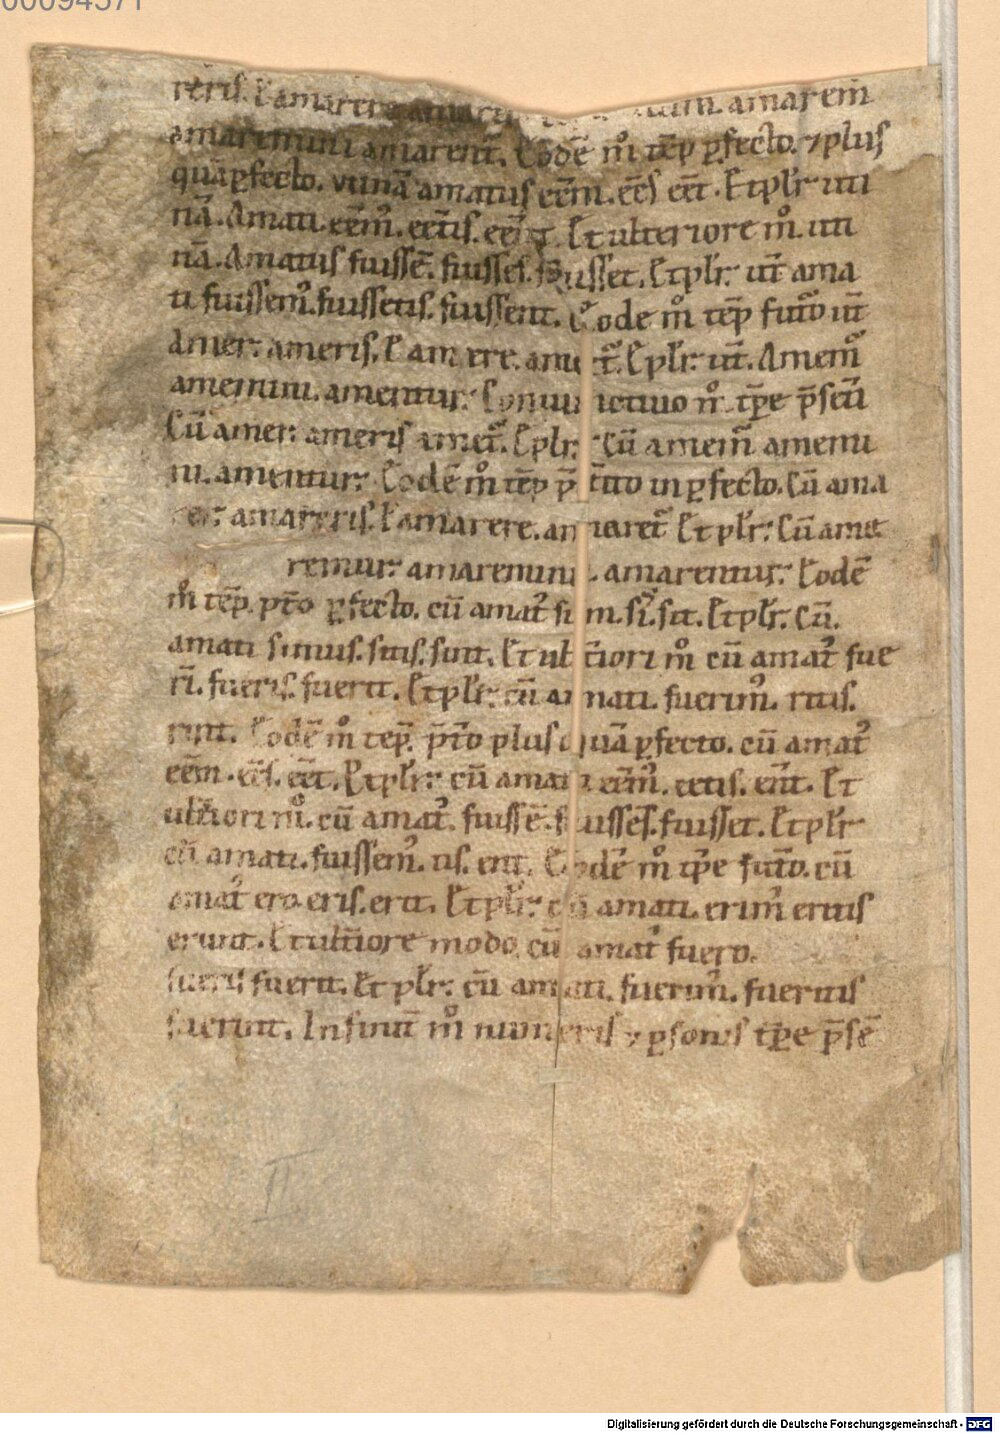 00094571
reris. ł amarere amare utin. amarem̄
amaremini amarent᷑. Eodē m̊ tēp ꝑfecto. ⁊ plus
quāꝑfecto. vtinā amatus eēm. eēs eēt. Et pl̄r uti
nā. Amati. eēm᷒. eētis. eēnt. Et ulteriore m̊. uti
nā. Amatus fuissē. fuisses. fuisset. Et pl̄r. ut̄ ama
ti fuissem᷒. fuissetis. fuissent. Eode m̊ tēp futō ut̄
Amer. ameris. ł amere. amet᷑. Et pl̄r. ut̄. Amem᷑
amemini. amentur. Coniunctiuo m̊ tp̄e p̄senti
Cū amer. ameris amet᷑. Et pl̄r. Cū amem᷑ amemi
ni. amentur. Eodē m̊ tēp p̄tito inꝑfecto. Cū ama
rer. amareris. ł amarere. amaret᷑ Et pl̄r. Cū ama
remur. amaremini. amarentur. Eodē
m̊ tēp. pt̄o ꝑfecto. cū amat᷒ sim. sis. sit. Et pl̄r. Cū.
amati simus. sitis. sint. Et ult̄iori m̊ cū amat᷒ fue
ri. fueris. fuerit. Et pl̄r. cū amati. fuerim᷒. ritis.
rint. Eodē m̊ tep̄. p̄t̄o plus quā ꝑfecto. cū amat᷒
eēm. eēs. eēt. Et pl̄r. cū amati eēm᷒. eetis. ēnt. Et
ult̄iori m̊. cū amat᷒. fuissē. fuisses. fuisset. Et pl̄r
cū amati. fuissem᷒. tis. ent. Eodē m̊ tp̄e fut̄o. cū
amat᷒ ero. eris. erit. Et pl̄r. cū amati. erim᷒ eritis
erunt. Et ult̄iore modo. cū amat᷒ fuero.
fueris fuerit. Et pl̄r. cū amati. fuerim᷒. fueritis
fuerint. Infinit̄ m̊ numeris ⁊ ꝑsonis tp̄e p̄sē
II
Digitalisierung gefördert durch die Deutsche Forschungsgemeinschaft - DFG